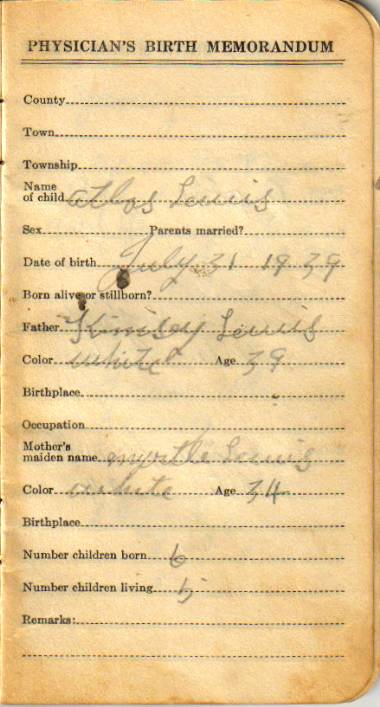 PHYSICIAN'S BIRTH MEMORANDUM
County
Town
Township
Name
of child atlas Lewis
Sex Parents married?
Date of birth July 31 1939
Born alive or stillborn?
Father Kinsey Lewis
Color white Age 39
Birthplace
Occupation
Mother's
maiden name myrtle Lewis
Color white Age 34
Birthplace
Number children born 6
Number children living 5
Remarks: